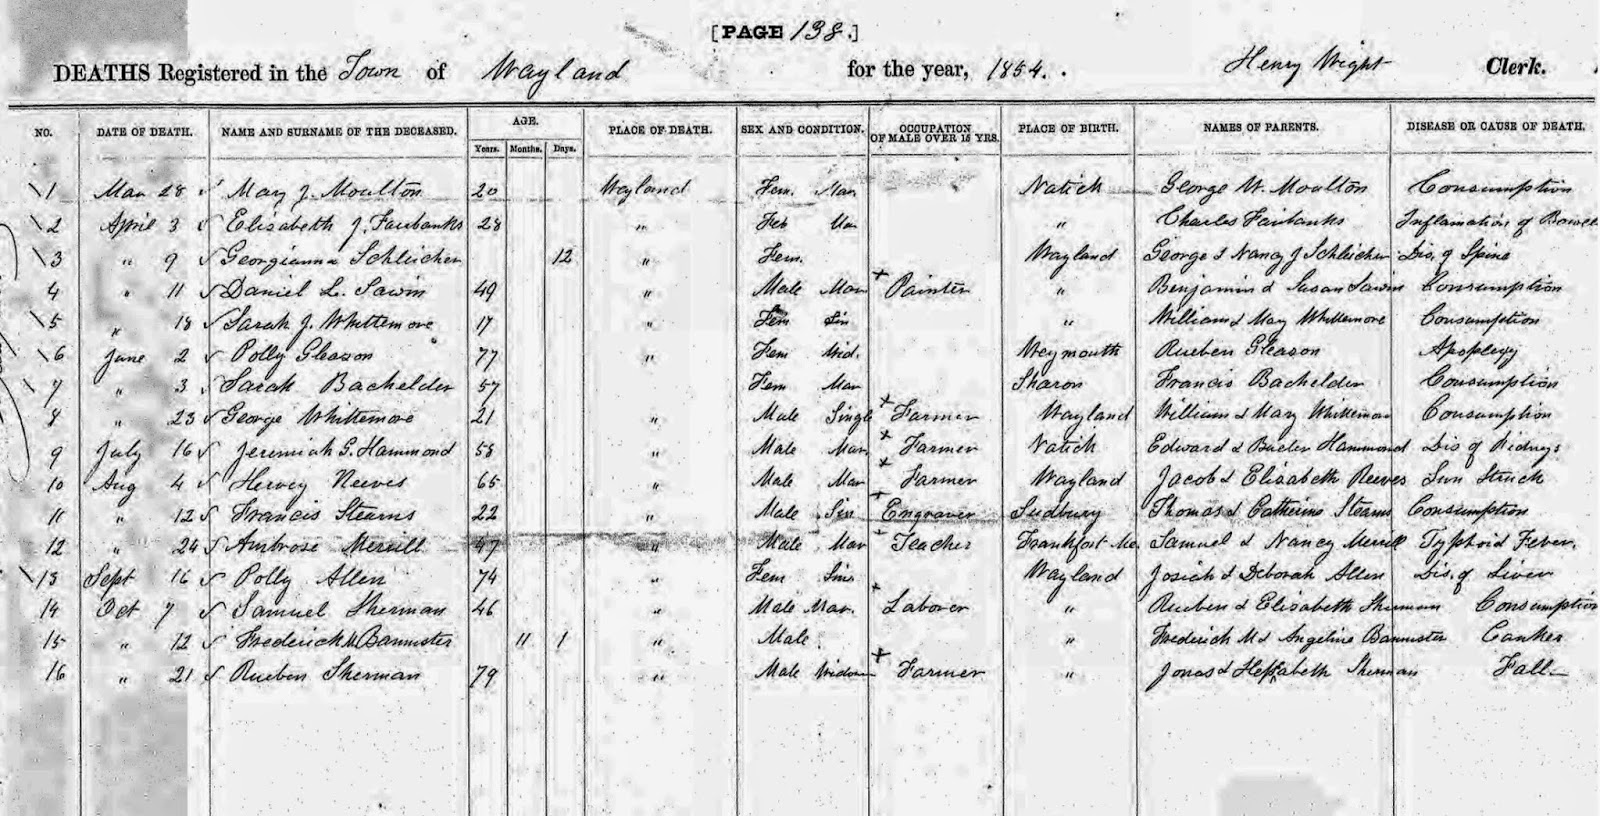 [PAGE 138.]
DEATHS Registered in the Town of Wayland for the year, 1854. Henry Wight Clerk.
NO. DATE OF DEATH. NAME AND SURNAME OF THE DECEASED. AGE. PLACE OF DEATH. SEX AND CONDITION. OCCUPATION OF MALE OVER 15 YRS. PLACE OF BIRTH. NAMES OF PARENTS. DISEASE OR CAUSE OF DEATH.
Years. Months. Days.
1 Mar 28 Mary J. Moulton 20 Wayland Fem. Mar Natick George W. Moulton Consumption
2 April 3 Elisabeth J. Fairbanks 28 " Mar " Charles Fairbanks Inflamation of Bowels
3 " 9 Georgianna Schleicher 12 " Fem. Wayland George & Nancy J Schleicher Dis. of Spine
4 " 11 Daniel L. Sawin 49 " Male Mar Painter " Benjamin & Susan Sawin Consumption
5 " 18 Sarah J. Whittemore 17 " Fem Sin " William & Mary Whittemore Consumption
6 June 2 Polly Gleason 77 " Fem Wid. Weymouth Rueben Gleason Apoplexy
7 " 3 Sarah Bachelder 57 Fem Mar Sharon Francis Bachelder Consumption
8 " 23 George Whittemore 21 " Male Single Farmer Wayland William & Mary Whittemore Consumption
9 July 16 Jeremiah G. Hammond " Male Mar. Farmer Natick Edward & Hammond Dis of Kidneys
10 Aug 4 Hervey Reeves 65 " Male Mar Farmer Wayland Jacob & Elisabeth Reeves Sun Struck
11 " 12 Francis Stearns 22 " Male Sin Engraver Sudbury Thomas & Catherine Stearns Consumption
12 " 24 Ambrose Merrill 47 " Male Mar Teacher Frankfort Me. Samuel & Nancy Merrill Typhoid Fever.
13 Sept 16 Polly Allen 74 " Fem Sin Wayland Josiah & Deborah Allen Dis. of Liver
14 Oct 7 Samuel Sherman 46 " Male Mar. Laborer " Rueben & Elisabeth Sherman Consumption
15 " 12 Frederick M Bannister 11 1 " Male. " Frederick M & Angeline Bannister Canker
16 " 21 Rueben Sherman 79 " Male Widower Farmer " Jonas & Hepsabeth Sherman Fall